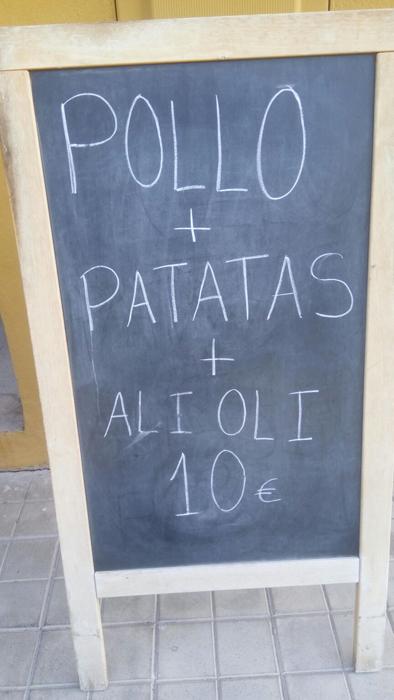 POLLO
+
PATATAS
+
ALI OLI
10€